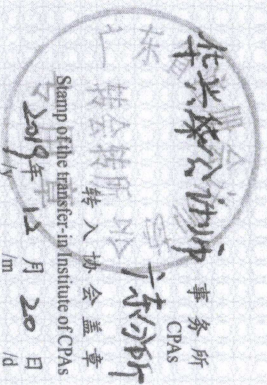 华兴会计师 事务所
CPAs
广东分所
转入协会盖章
Stamp of the transfer-in Institute of CPAs
2019年 12月 20日
/y /m /d
广东
转会转所
专用章